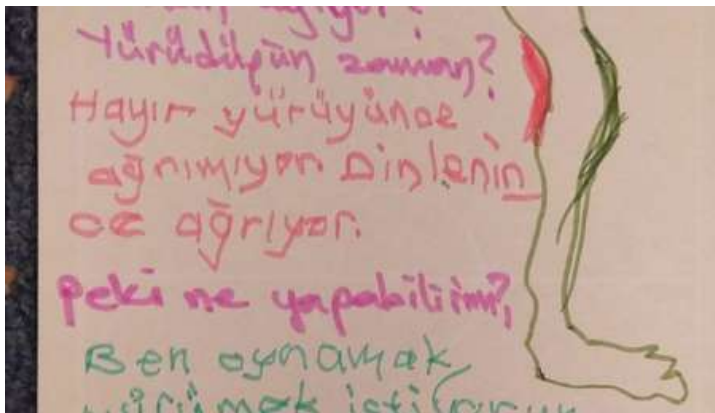 ağrıyor?
Yürüdüğün zaman?
Hayır yürüyünce
ağrımıyor. Dinlenin
ce ağrıyor.
Peki ne yapabilirim?
Ben oynamak,
yürümek istiyorum